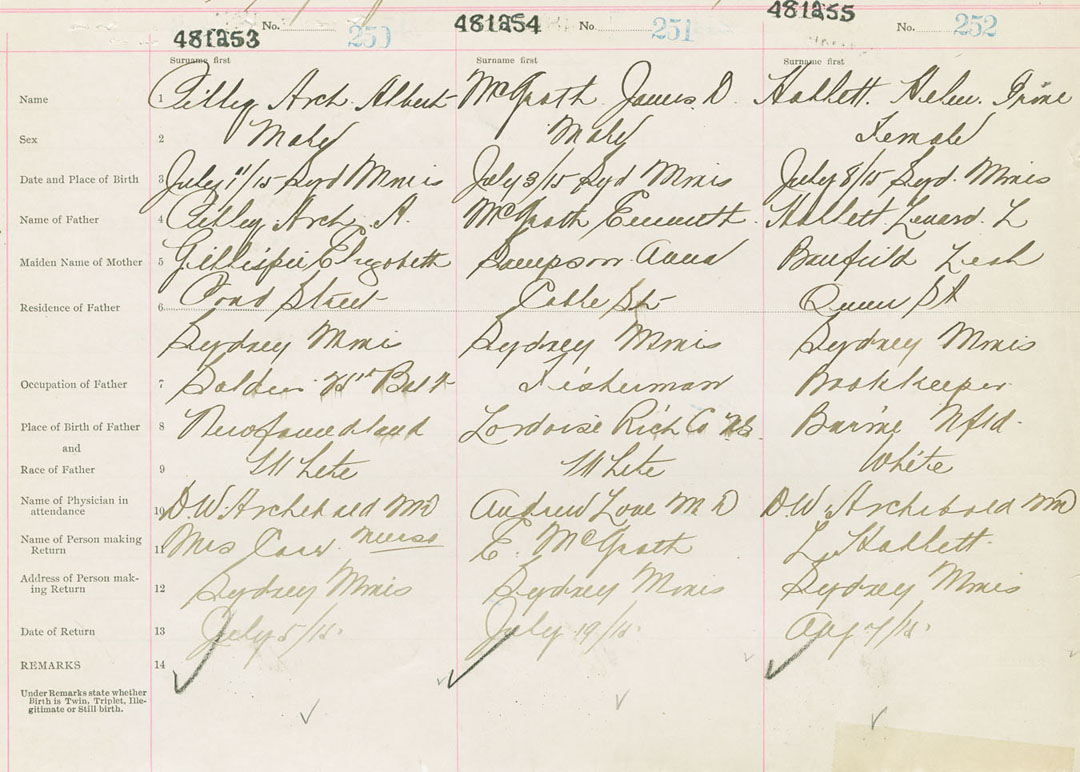 481253 No. 250 481254 No. 251 481255 No. 252
Surname first Surname first Surname first
Name 1 Pilley Arch. Albert McGrath James D. Hablett. Helen Irine
Sex 2 Male Male Female
Date and Place of Birth 3 July 1/15 Syd Mines July 3/15 Syd Mines July 8/15 Syd. Mines
Name of Father 4 Pilley Arch A. McGrath Emmett Hablett Lenard. L
Maiden Name of Mother 5 Gillispie Elizabeth Sampson Anna Banfield Leah
Residence of Father 6 Street Cable St Queen St
Sydney Mines Sydney Mines Sydney Mines
Occupation of Father 7 Soldier Batt Fisherman Bookkeeper
Place of Birth of Father 8 Newfoundland Lordoise Rich Co NS. Burine Nfld.
and
Race of Father 9 White White White
Name of Physician in
attendance 10 D.W. Archibald MD Andrew Love MD D.W. Archibald MD
Name of Person making
Return 11 Mrs Nurse E. McGrath L. Hablett
Address of Person mak-
ing Return 12 Sydney Mines Sydney Mines Sydney Mines
Date of Return 13 July 5/15. July 19/15. Aug 7/15.
REMARKS 14
Under Remarks state whether
Birth is Twin, Triplet, Ille-
gitimate or Still birth.